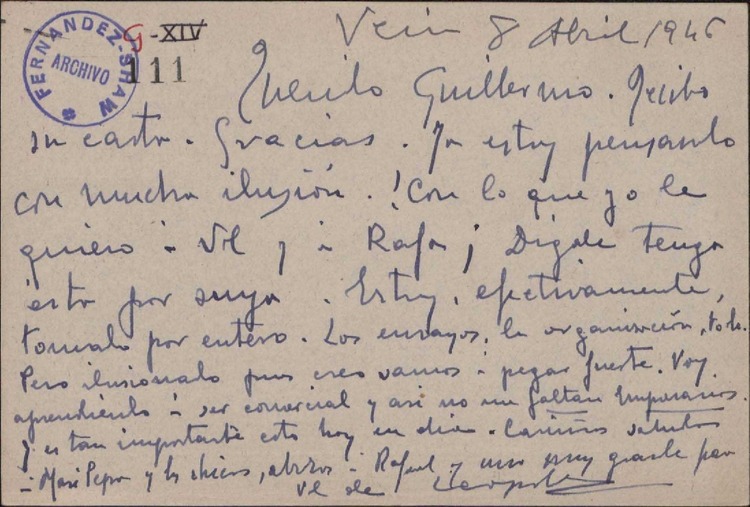 FERNANDEZ-SHAW
ARCHIVO
G-XIV
111
8 Abril 1946
Querido Guillermo. Recibo
su carta. Gracias. Ya estoy pensando
con mucha ilusión. ¡Con lo que yo le
quiero à Vd y à Rafa! Dígale tenga
esta por suya. Estoy, efectivamente,
tomado por entero. Los ensayos, la organización, todo.
Pero ilusionado pues creo vamos à pegar fuerte. Voy
aprendiendo à ser comercial y así no me faltan Empresarios.
Y es tan importante esto hoy en dia. Cariños saludos
à Mari Pepa y los chicos, abrazos à Rafael y uno muy grande para
Vd de Leopoldo